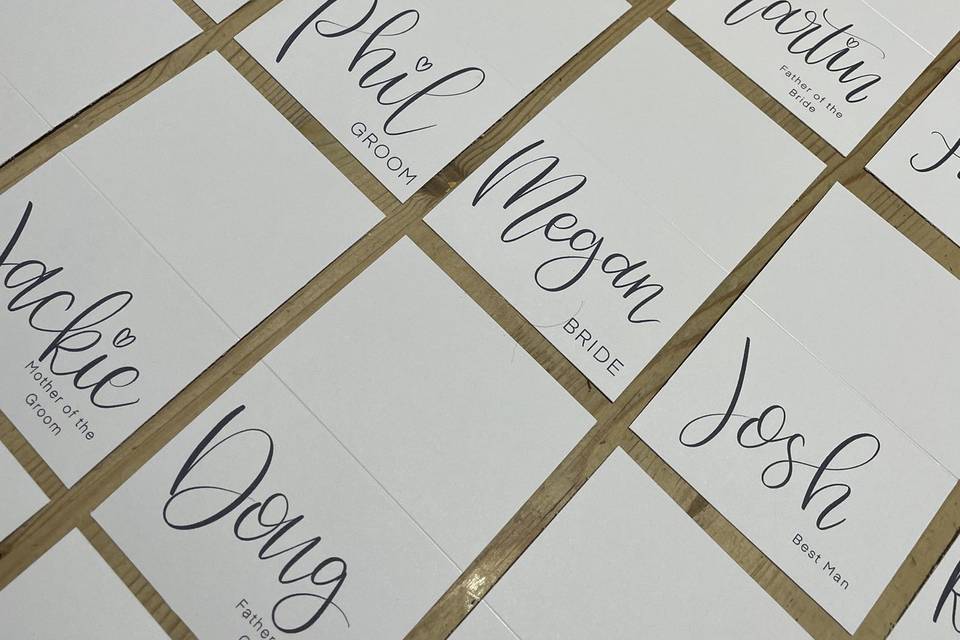 Phil
GROOM
Martin
Father of the
Bride
Megan
BRIDE
Jackie
Mother of the
Groom
Josh
Best Man
Doug
Father